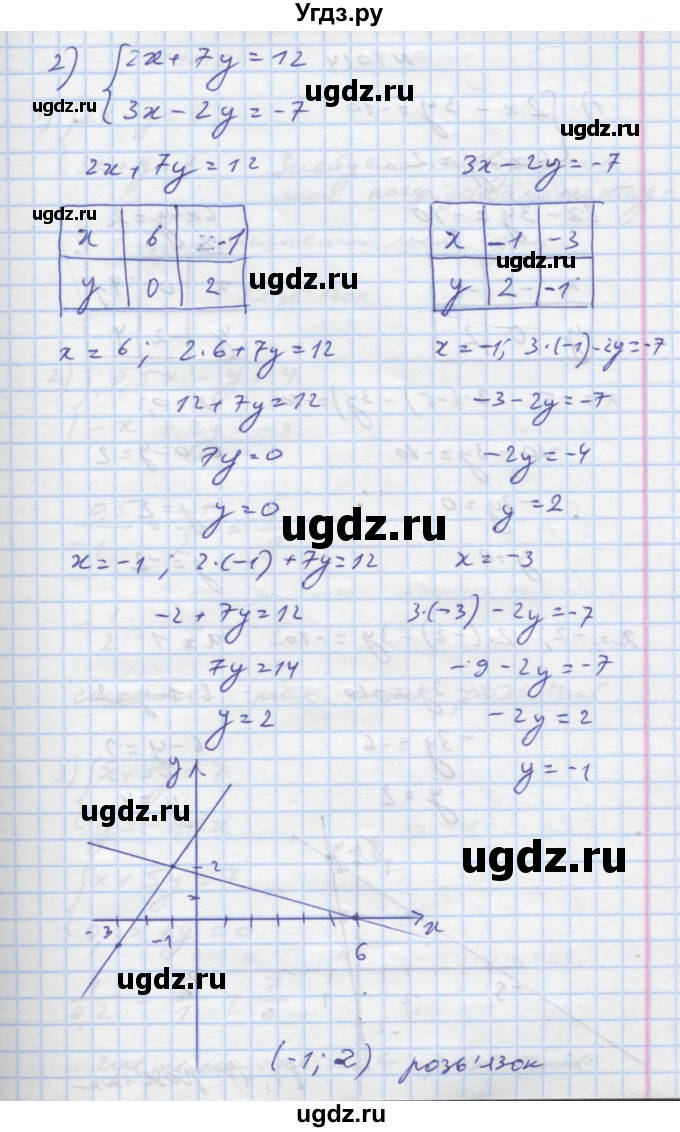 Угдз.ру
2) { 2x + 7y = 12
3x − 2y = −7
ugdz.ru
ugdz.ru
2x + 7y = 12
3x − 2y = −7
x | 6 | −1
y | 0 | 2
x | −1 | −3
y | 2 | −1
ugdz.ru
ugdz.ru
ugdz.ru
x = 6; 2·6 + 7y = 12
x = −1; 3·(−1) − 2y = −7
12 + 7y = 12
−3 − 2y = −7
7y = 0
−2y = −4
y = 0
y = 2
ugdz.ru
x = −1; 2·(−1) + 7y = 12
x = −3
−2 + 7y = 12
3·(−3) − 2y = −7
7y = 14
−9 − 2y = −7
y = 2
−2y = 2
y = −1
y
ugdz.ru
ugdz.ru
2
−3
−1
6
x
ugdz.ru
(−1; 2) розв'язок
ugdz.ru